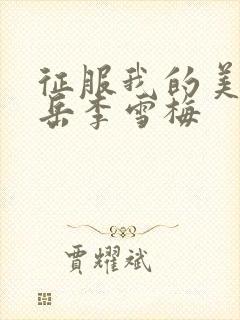 征服我的美
岳李雪梅
賈耀斌